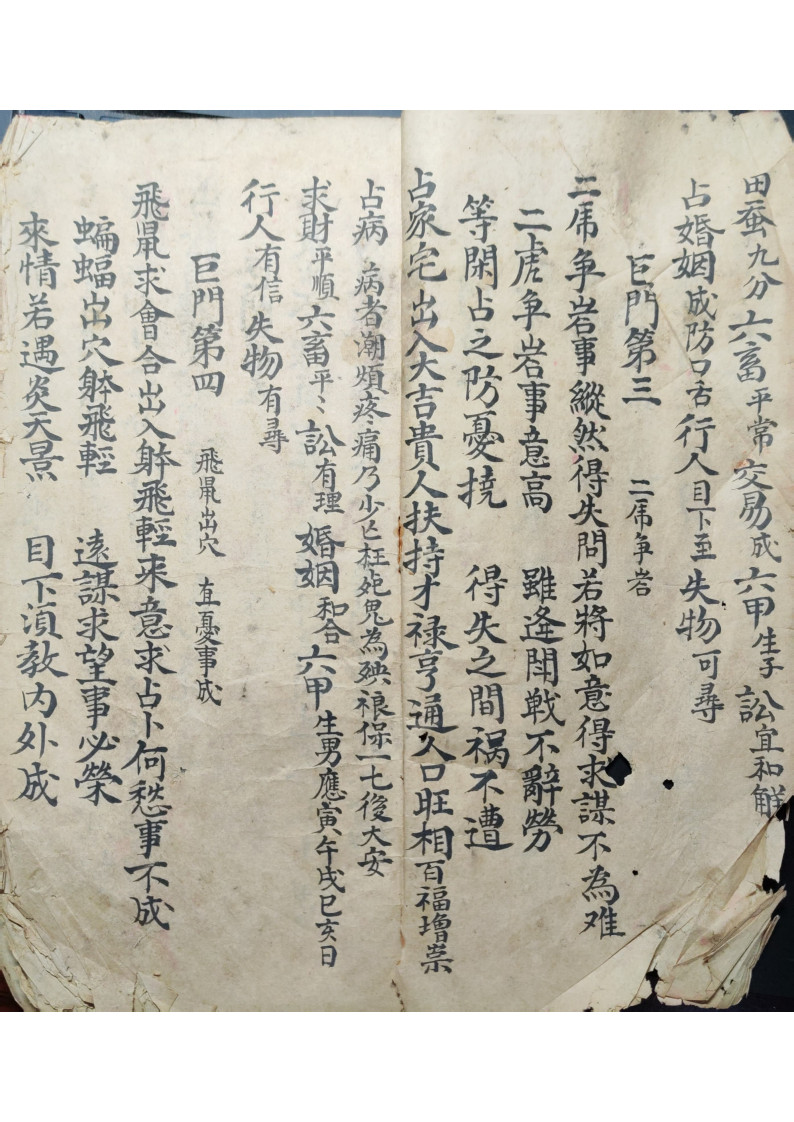 田蚕九分六畜平常交易成六甲生子訟宜和觧
占婚姻成防口舌行人目下至失物可尋
巨門第三 二虎争岩
二虎争岩事縱然得失問若將如意得求謀不為难
二虎争岩事意高 雖逄閗戦不辭勞
等閑占之防憂撓 得失之間禍不遭
占家宅出入大吉貴人扶持才禄亨通人口旺相百福增崇
占病 病者潮煩疼痛乃少亡枉死鬼為殃禳保一七後大安
求財平順六畜平〻訟有理婚姻和合六甲生男應寅午戌巳亥日
行人有信失物有尋
巨門第四 飛鼠出穴 直憂事成
飛鼠求會合出入躰飛輕来意求占卜何愁事不成
蝙蝠出穴躰飛輕 遠謀求望事必榮
來情若遇炎天景 目下湏教内外成